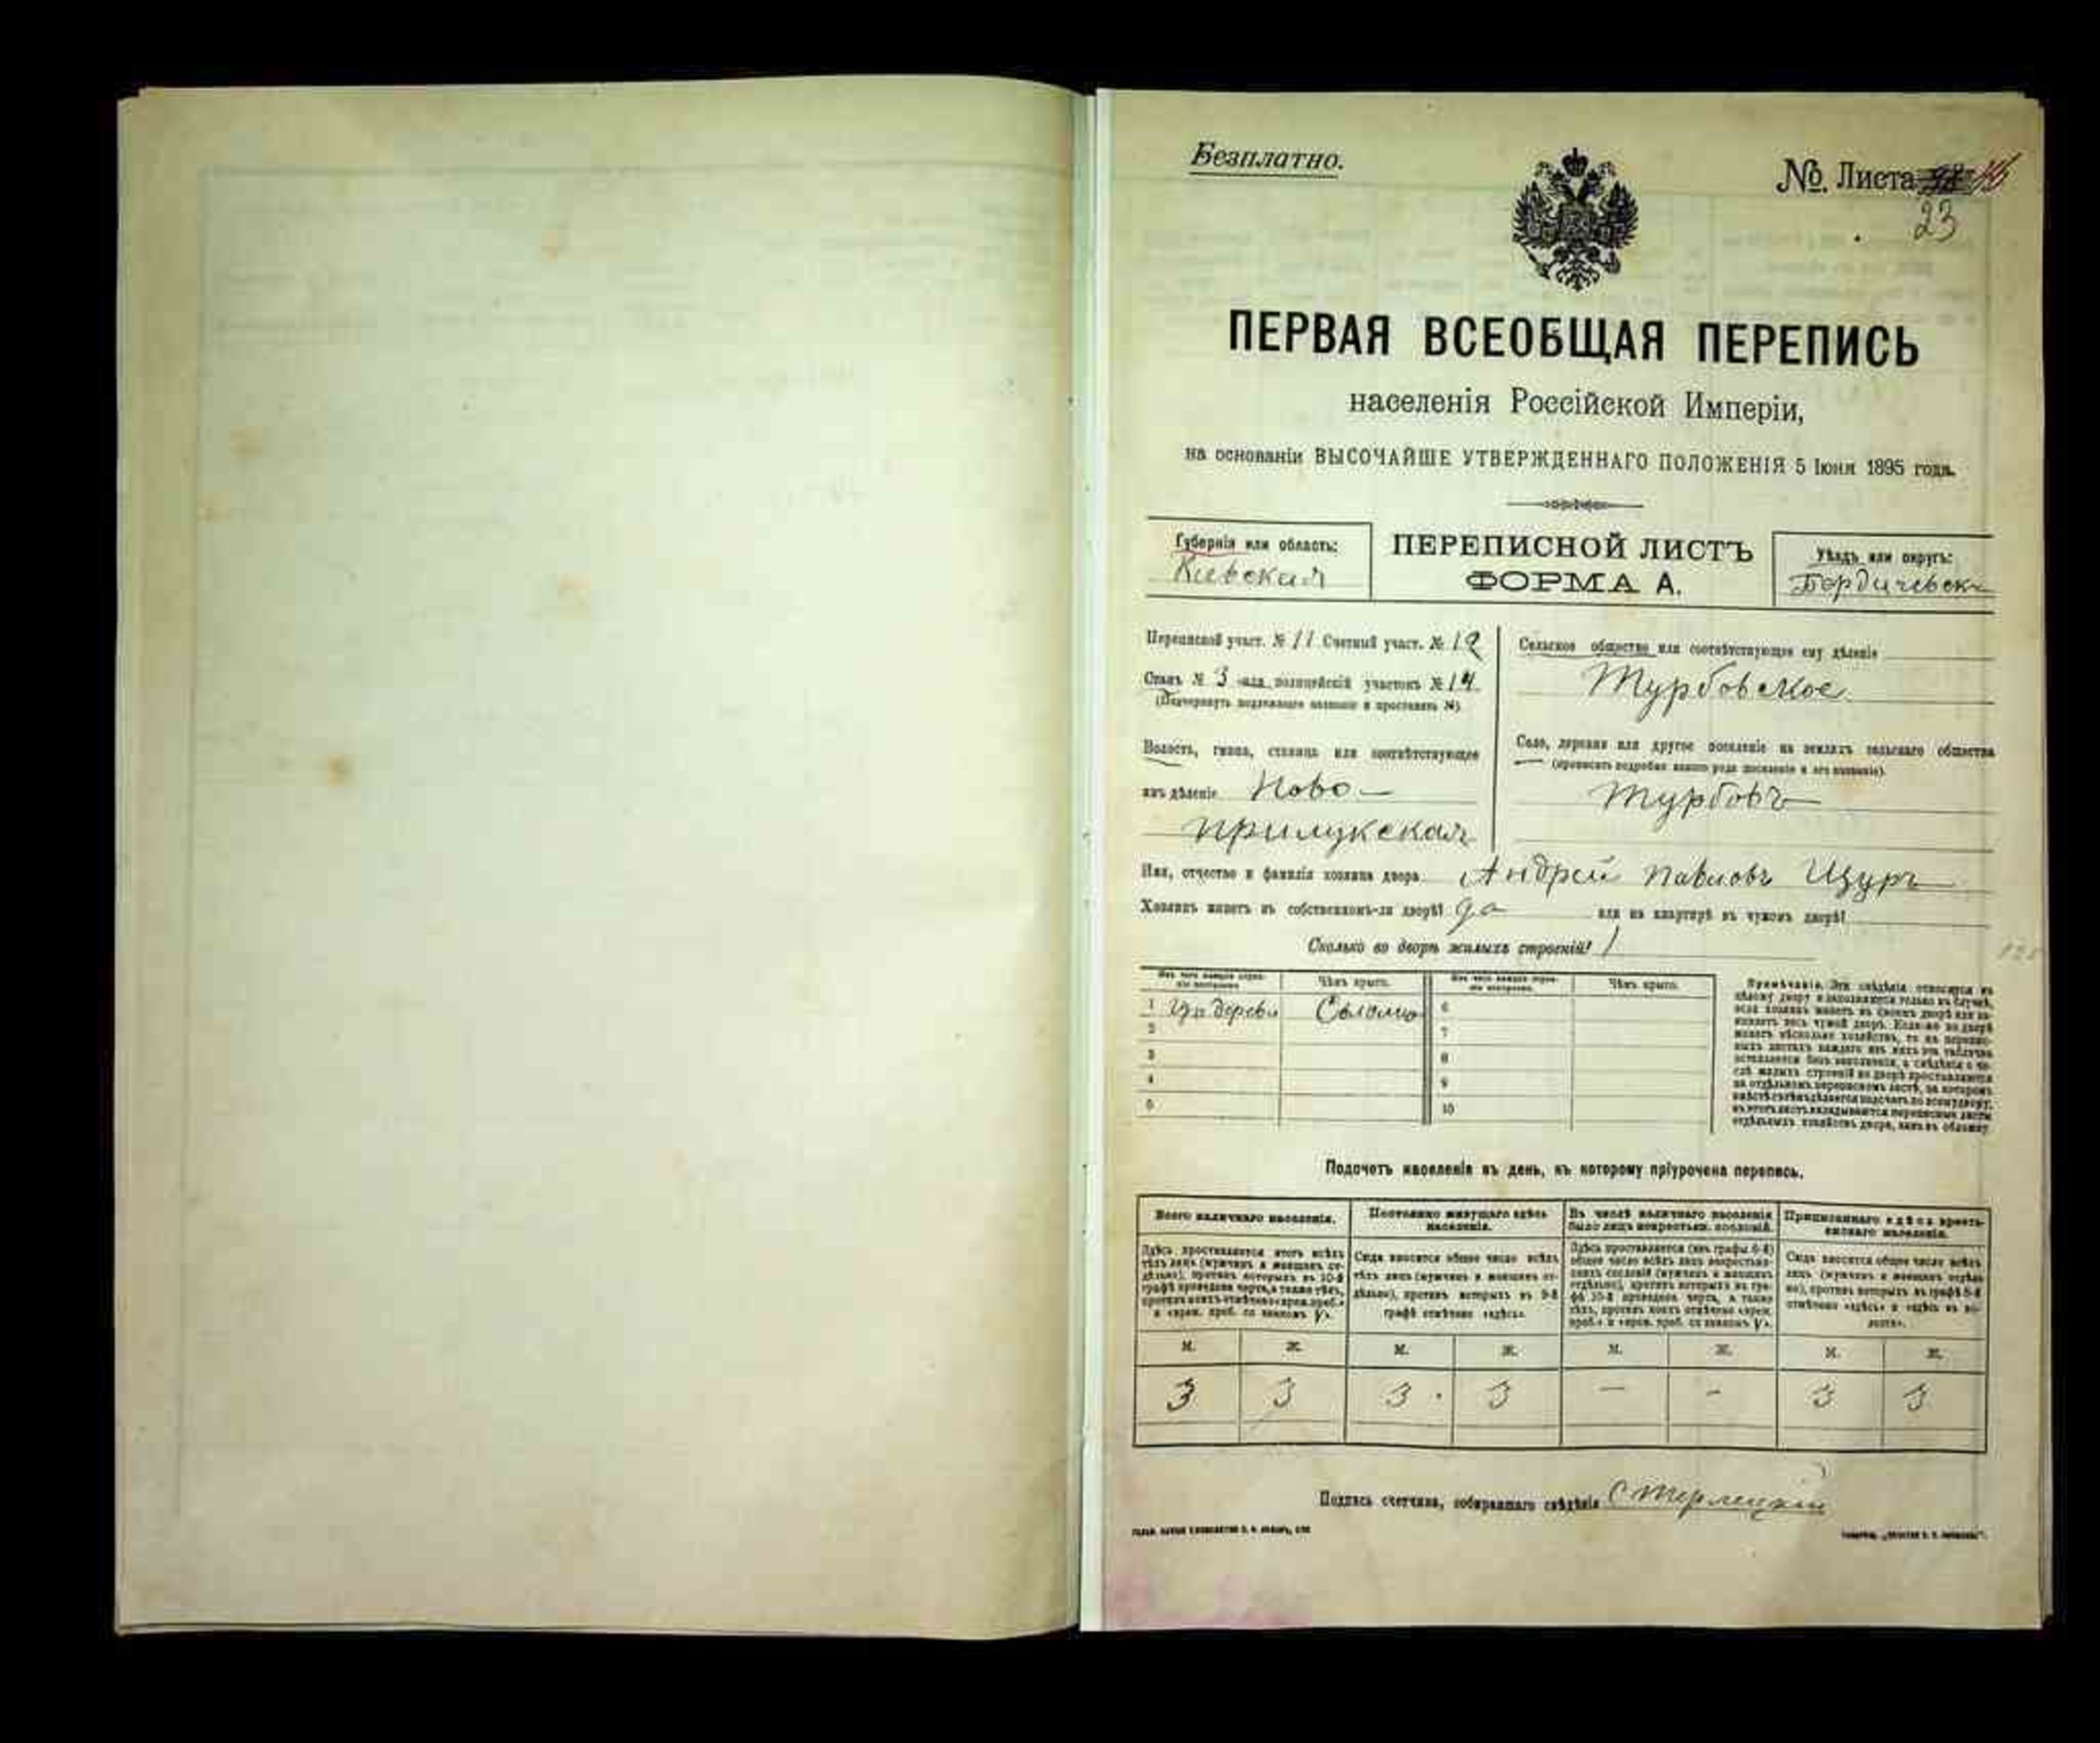 Безплатно.
№. Листа
23
ПЕРВАЯ ВСЕОБЩАЯ ПЕРЕПИСЬ
населенія Россійской Имперіи,
на основаніи ВЫСОЧАЙШЕ УТВЕРЖДЕННАГО ПОЛОЖЕНІЯ 5 Іюня 1895 года.
Губернія или область:
Киевская
ПЕРЕПИСНОЙ ЛИСТЪ
ФОРМА А.
Уѣздъ или округъ:
Бердичевск
Переписной участ. № 11 Счетный участ. № 12
Станъ № 3 или полицейскій участокъ № 14
(Подчеркнуть подлежащее названіе и проставить №).
Волость, гмина, станица или соотвѣтствующее
имъ дѣленіе Ново-
прилукская
Сельское общество или соотвѣтствующее ему дѣленіе
Турбовское
Село, деревня или другое поселеніе на земляхъ сельскаго общества
(прописать подробно какого рода поселеніе и его названіе).
Турбовъ
Имя, отчество и фамилія хозяина двора Андрей Павловъ Щуръ
Хозяинъ живетъ въ собственномъ-ли дворѣ? да или на квартирѣ въ чужомъ дворѣ?
Сколько во дворѣ жилыхъ строеній? 1
Изъ чего каждое строеніе построено. Чѣмъ крыто. Изъ чего каждое строеніе построено. Чѣмъ крыто.
1 Изъ дерева Соломою 6
2 7
3 8
4 9
5 10
Примѣчаніе. Эти свѣдѣнія относятся къ
цѣлому двору и заполняются только въ случаѣ,
если хозяинъ живетъ въ своемъ дворѣ или занимаетъ весь чужой дворъ. Если-же во дворѣ
живетъ нѣсколько хозяйствъ, то въ переписныхъ листахъ каждаго изъ нихъ эта табличка
оставляется безъ заполненія, а свѣдѣнія о числѣ жилыхъ строеній во дворѣ проставляются
на отдѣльномъ переписномъ листѣ, на которомъ
въ этотъ листъ вкладываются переписные листы
отдѣльныхъ хозяйствъ двора, какъ въ обложку.
Подсчетъ населенія въ день, къ которому пріурочена перепись.
Всего наличнаго населенія.
Постоянно живущаго здѣсь населенія.
Въ числѣ наличнаго населенія было лицъ некрестьян. сословій.
Приписаннаго здѣсь крестьянскаго населенія.
Здѣсь проставляется итогъ всѣхъ
тѣхъ лицъ (мужчинъ и женщинъ отдѣльно), противъ которыхъ въ 10-й
графѣ проведена черта, а также тѣхъ,
противъ коихъ отмѣчено «врем. преб.»
Сюда вносится общее число всѣхъ
тѣхъ лицъ (мужчинъ и женщинъ отдѣльно), противъ которыхъ въ 9-й
графѣ отмѣчено «здѣсь».
Здѣсь проставляется (изъ графы 4-й)
общее число всѣхъ лицъ некрестьянскихъ сословій (мужчинъ и женщинъ
отдѣльно), противъ которыхъ въ графѣ 10-й проведена черта, а также
тѣхъ, противъ коихъ отмѣчено «врем.
Сюда вносится общее число всѣхъ
лицъ (мужчинъ и женщинъ отдѣльно), противъ которыхъ въ графѣ 8-й
отмѣчено «здѣсь» и «здѣсь въ волости».
М. Ж. М. Ж. М. Ж. М. Ж.
3 3 3 3 — - 3 3
Подпись счетчика, собиравшаго свѣдѣнія С Терлецкій